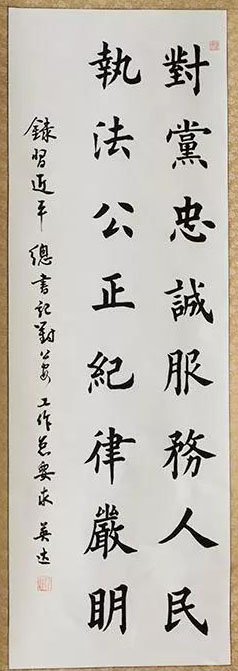 對黨忠誠服務人民
執法公正紀律嚴明
錄習近平總書記對公安工作总要求 英达